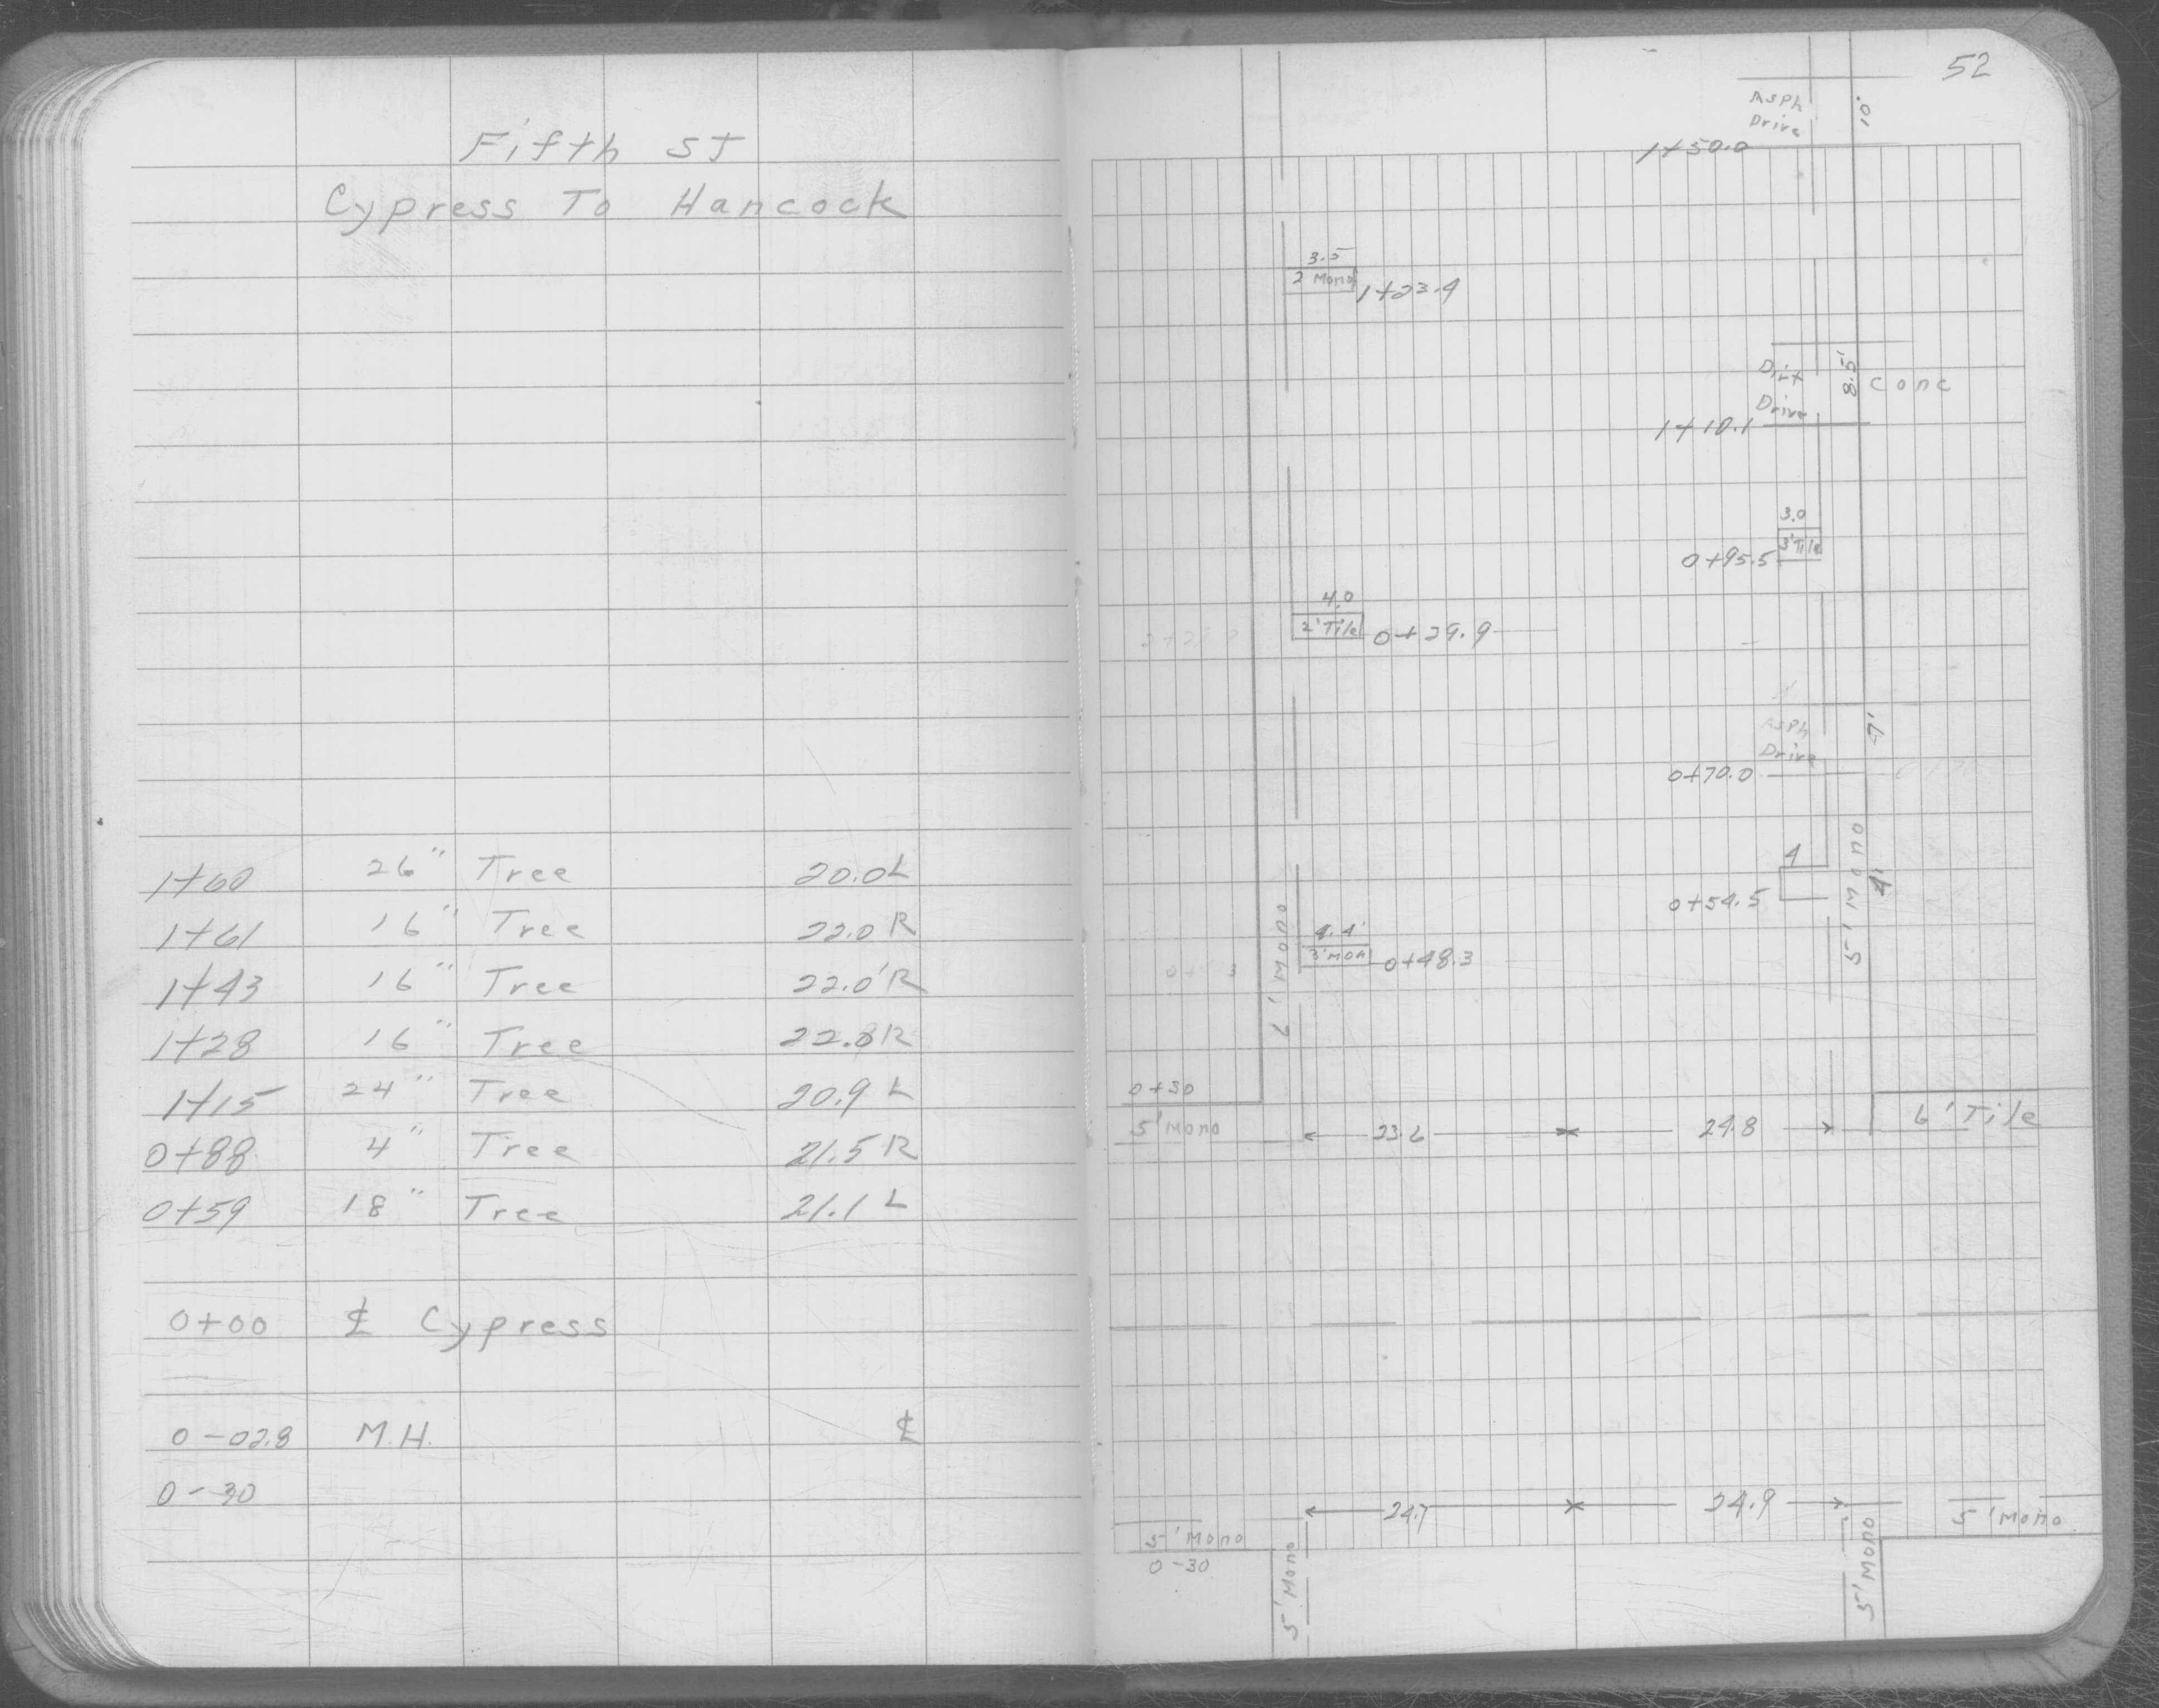 Fifth ST
Cypress To Hancock
1+60 26" Tree 20.0L
1+61 16" Tree 22.0 R
1+43 16" Tree 22.0'R
1+28 16" Tree 22.8R
1+15 24" Tree 20.9 L
0+88 4" Tree 21.5 R
0+59 18" Tree 21.1 L
0+00 ℄ Cypress
0-02.8 M.H. ℄
0-30
52
Asph
Drive
10'
1+50.0
3.5
2 Mono 1+23.4
Dirt
Drive
8.5'
Conc
1+10.1
3.0
3'Tile
0+95.5
4.0
2'Tile 0+29.9
Asph
Drive
7'
0+70.0
4
0+54.5
5' Mono
4'
6' Mono
4.4'
3'Mon 0+48.3
0+30
5' Mono
23.6 24.8
6' Tile
24.7 24.9
5' Mono
0-30
5' Mono
5' Mono
5' Mono